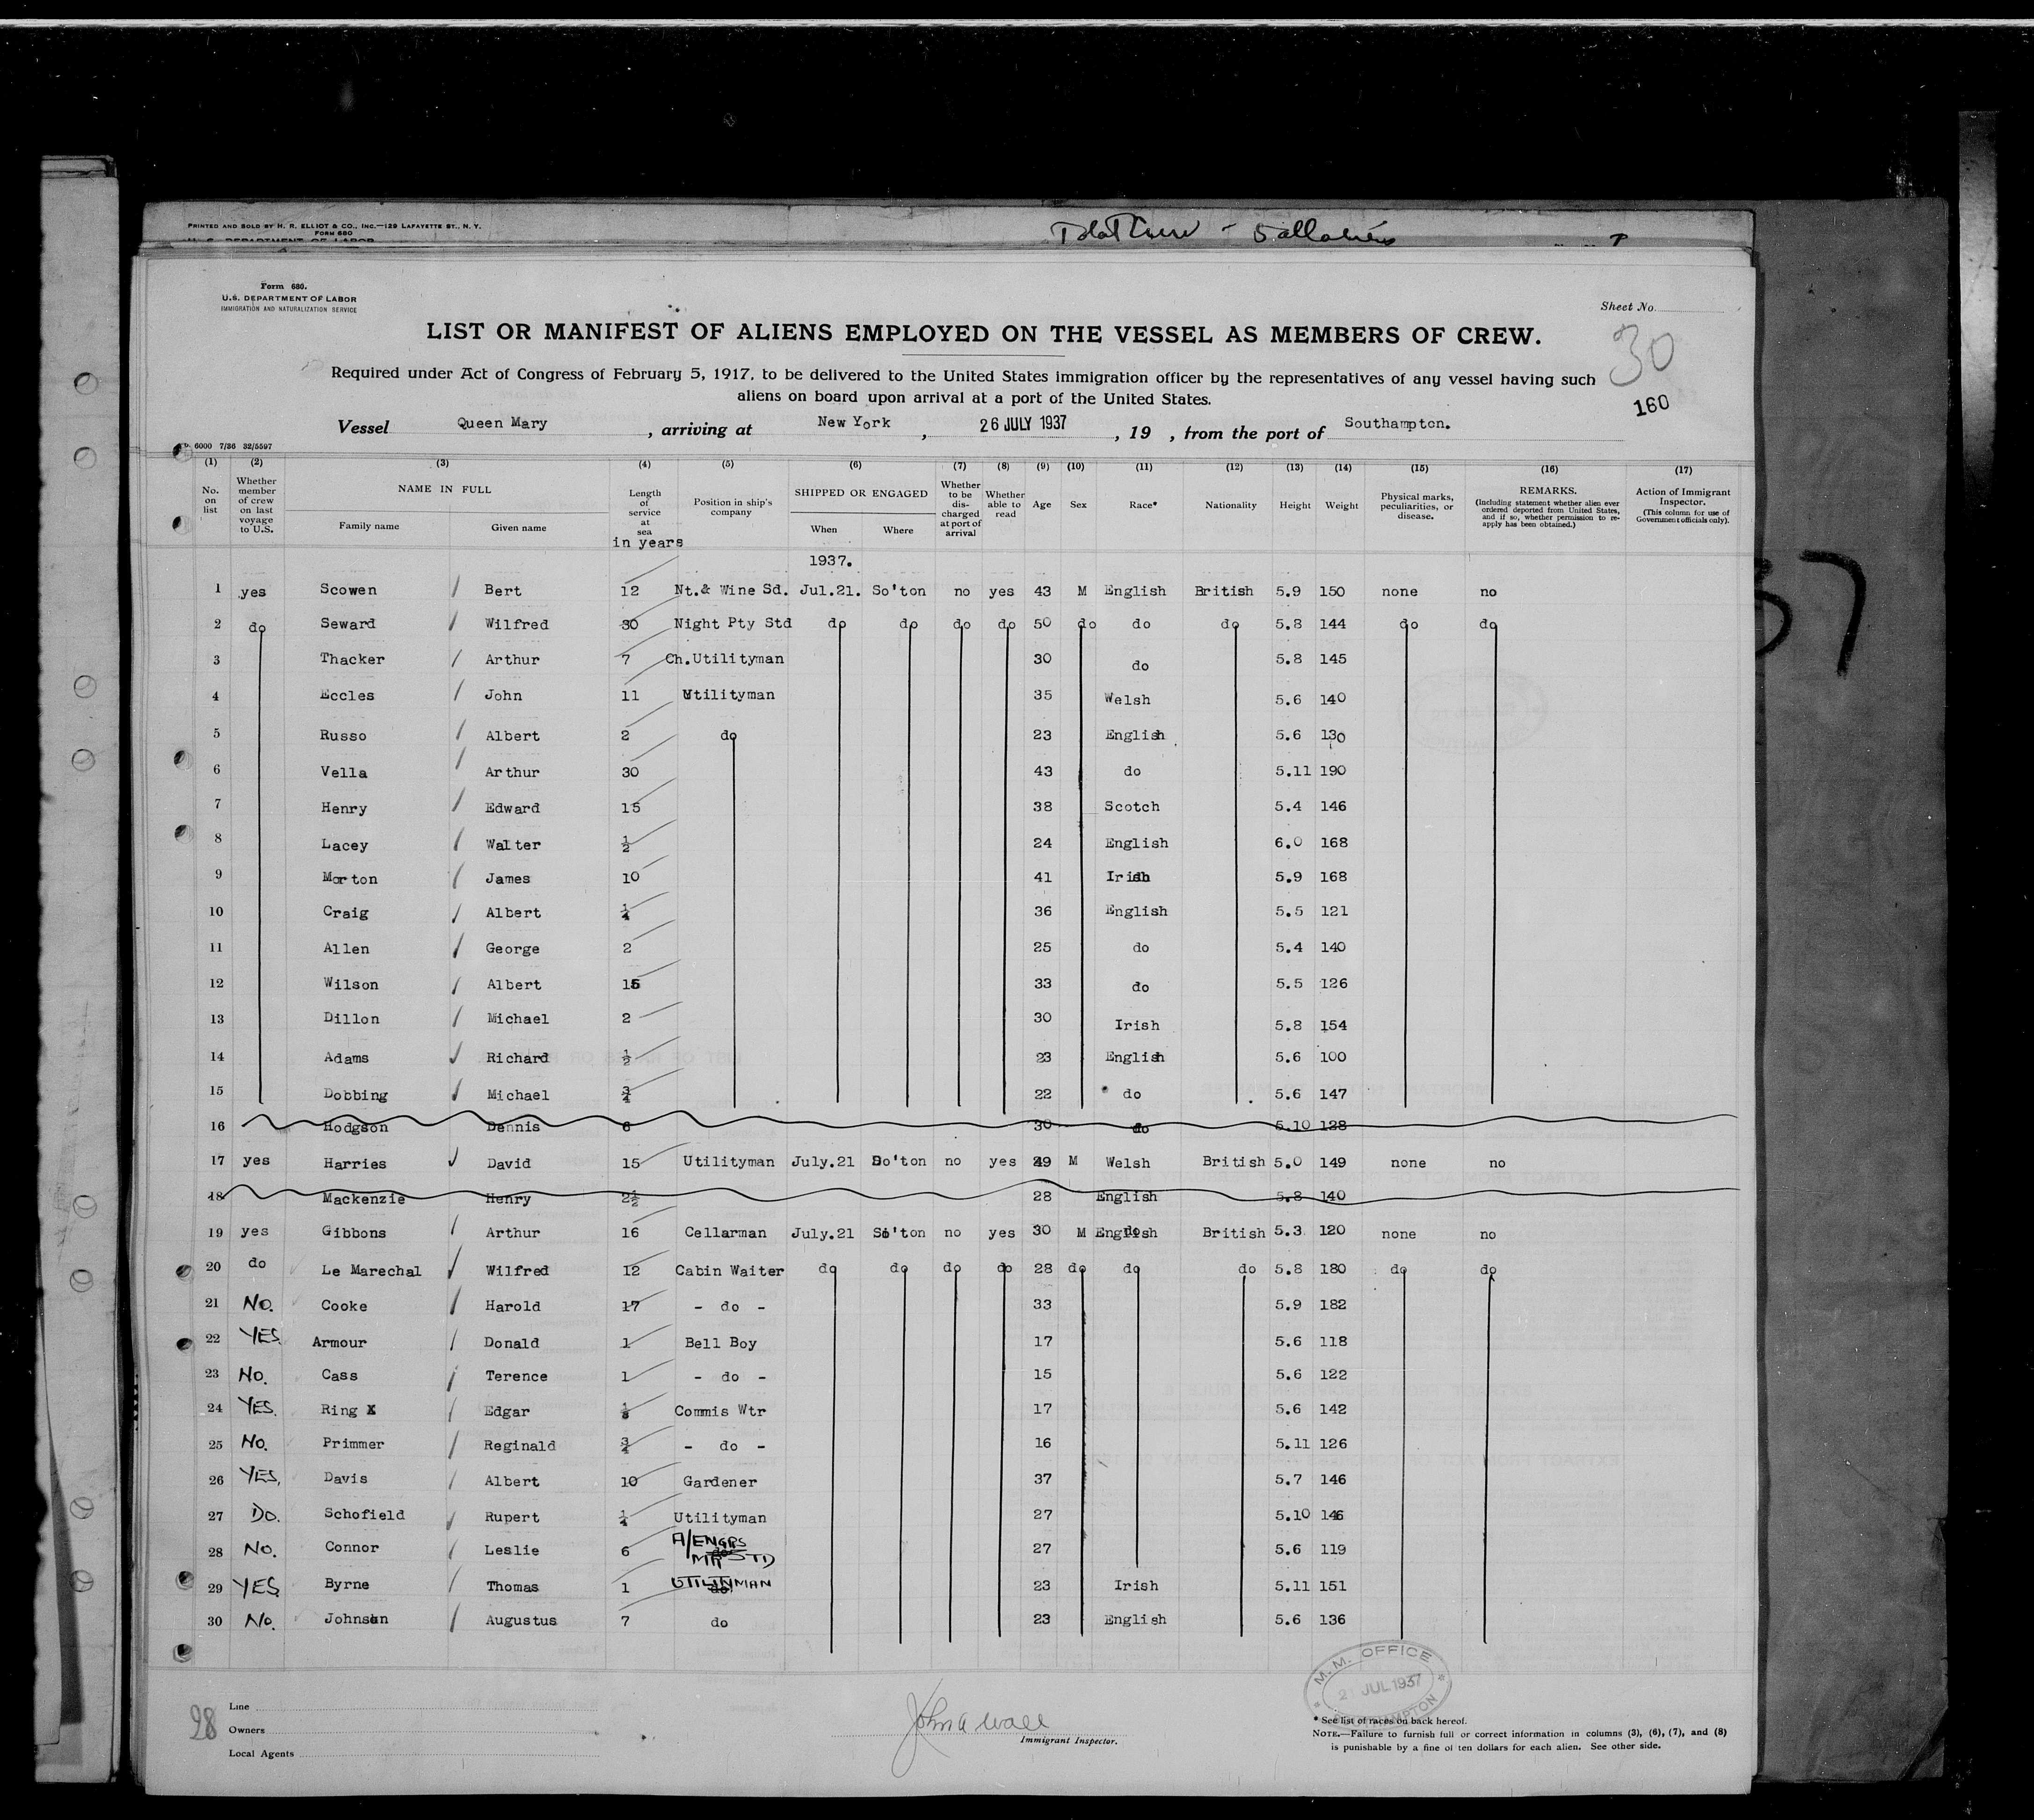 PRINTED AND SOLD BY H. R. ELLIOT & CO., INC.—129 LAFAYETTE ST., N. Y.
FORM 680
U. S. DEPARTMENT OF LABOR
Form 680.
U.S. DEPARTMENT OF LABOR
IMMIGRATION AND NATURALIZATION SERVICE
Sheet No.
LIST OR MANIFEST OF ALIENS EMPLOYED ON THE VESSEL AS MEMBERS OF CREW.
30
Required under Act of Congress of February 5, 1917, to be delivered to the United States immigration officer by the representatives of any vessel having such
aliens on board upon arrival at a port of the United States.
160
Vessel Queen Mary, arriving at New York, 26 JULY 1937, 19 , from the port of Southampton.
6000 7/36 32/5597
(1) (2) (3) (4) (5) (6) (7) (8) (9) (10) (11) (12) (13) (14) (15) (16) (17)
No. on list
Whether member of crew on last voyage to U.S.
NAME IN FULL
Family name Given name
Length of service at sea in years
Position in ship's company
SHIPPED OR ENGAGED
When Where
Whether to be discharged at port of arrival
Whether able to read
Age Sex Race* Nationality Height Weight
Physical marks, peculiarities, or disease.
REMARKS. (Including statement whether alien ever ordered deported from United States, and if so, whether permission to re-apply has been obtained.)
Action of Immigrant Inspector. (This column for use of Government officials only).
1937.
1 yes Scowen Bert 12 Nt.& Wine Sd. Jul.21. So'ton no yes 43 M English British 5.9 150 none no
2 do Seward Wilfred 30 Night Pty Std do do do do 50 do do do 5.8 144 do do
3 Thacker Arthur 7 Ch.Utilityman 30 do 5.8 145
4 Eccles John 11 Utilityman 35 Welsh 5.6 140
5 Russo Albert 2 do 23 English 5.6 130
6 Vella Arthur 30 43 do 5.11 190
7 Henry Edward 15 38 Scotch 5.4 146
8 Lacey Walter ½ 24 English 6.0 168
9 Morton James 10 41 Irish 5.9 168
10 Craig Albert ¼ 36 English 5.5 121
11 Allen George 2 25 do 5.4 140
12 Wilson Albert 15 33 do 5.5 126
13 Dillon Michael 2 30 Irish 5.8 154
14 Adams Richard ½ 23 English 5.6 100
15 Dobbing Michael ¾ 22 do 5.6 147
16 Hodgson Dennis 6 30 do 5.10 128
17 yes Harries David 15 Utilityman July.21 So'ton no yes 49 M Welsh British 5.0 149 none no
18 Mackenzie Henry 2½ 28 English 5.8 140
19 yes Gibbons Arthur 16 Cellarman July.21 So'ton no yes 30 M English British 5.3 120 none no
20 do Le Marechal Wilfred 12 Cabin Waiter do do do do 28 do do do 5.8 180 do do
21 No. Cooke Harold 17 - do - 33 5.9 182
22 YES Armour Donald 1 Bell Boy 17 5.6 118
23 No. Cass Terence 1 - do - 15 5.6 122
24 YES. Ring Edgar Commis Wtr 17 5.6 142
25 No. Primmer Reginald ¾ - do - 16 5.11 126
26 YES, Davis Albert 10 Gardener 37 5.7 146
27 Do. Schofield Rupert ¼ Utilityman 27 5.10 146
28 No. Connor Leslie 6 A/ENGRS 27 5.6 119
29 YES Byrne Thomas 1 23 Irish 5.11 151
30 No. Johnson Augustus 7 do 23 English 5.6 136
M.M. OFFICE
21 JUL 1937
SOUTHAMPTON
28
Line
Owners
Local Agents
Immigrant Inspector.
* See list of races on back hereof.
NOTE.—Failure to furnish full or correct information in columns (3), (6), (7), and (8)
is punishable by a fine of ten dollars for each alien. See other side.
37